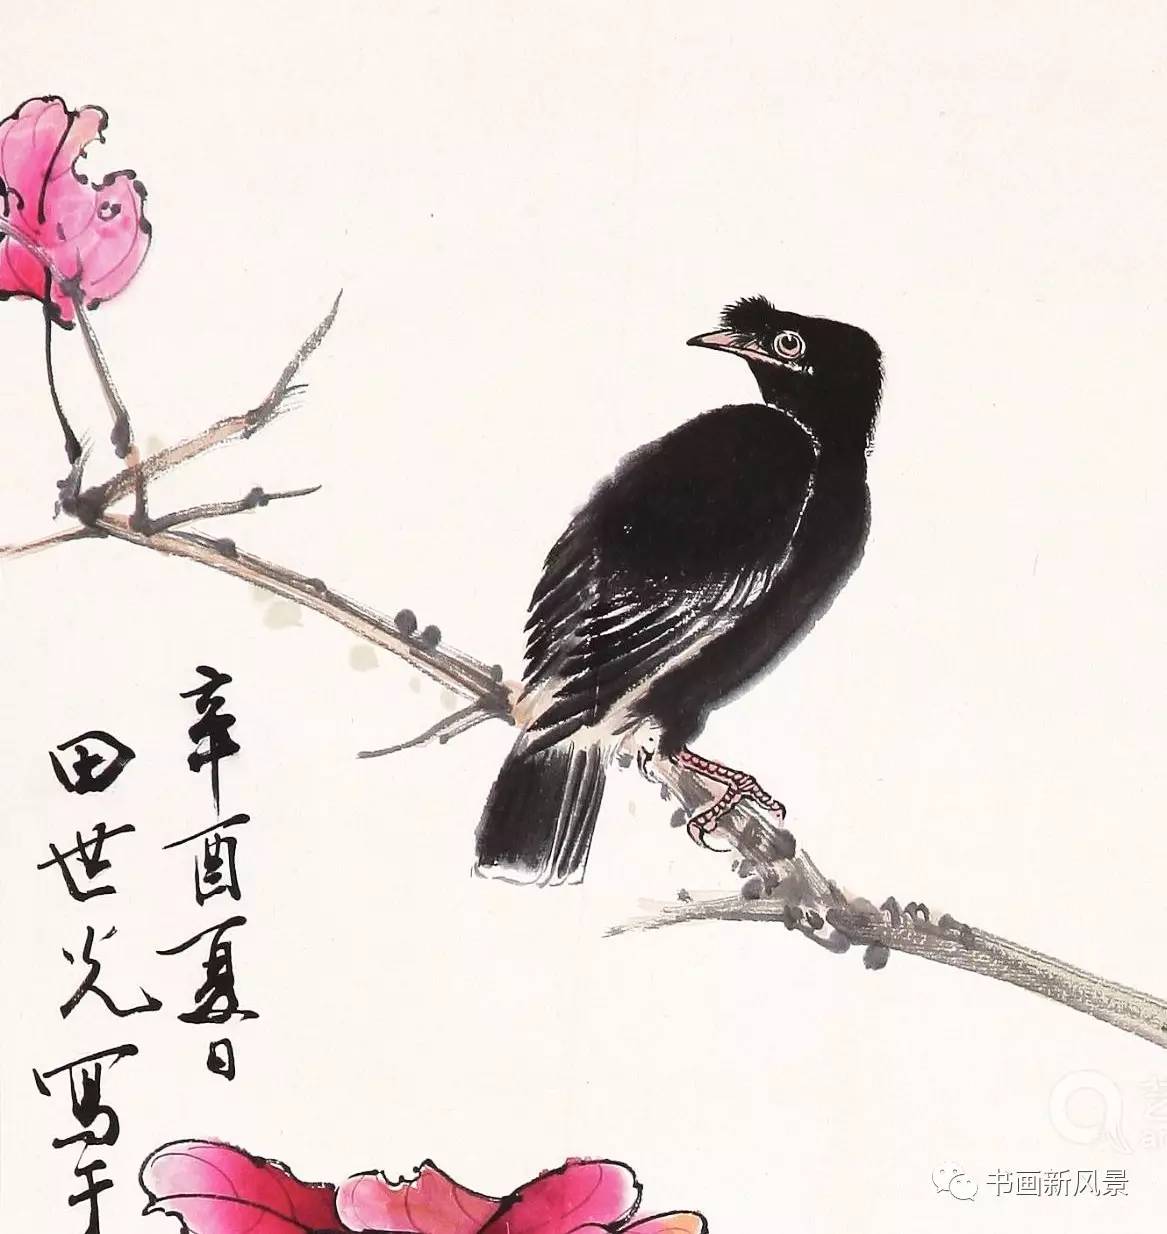 辛酉夏日
田世光寫于
书画新风景